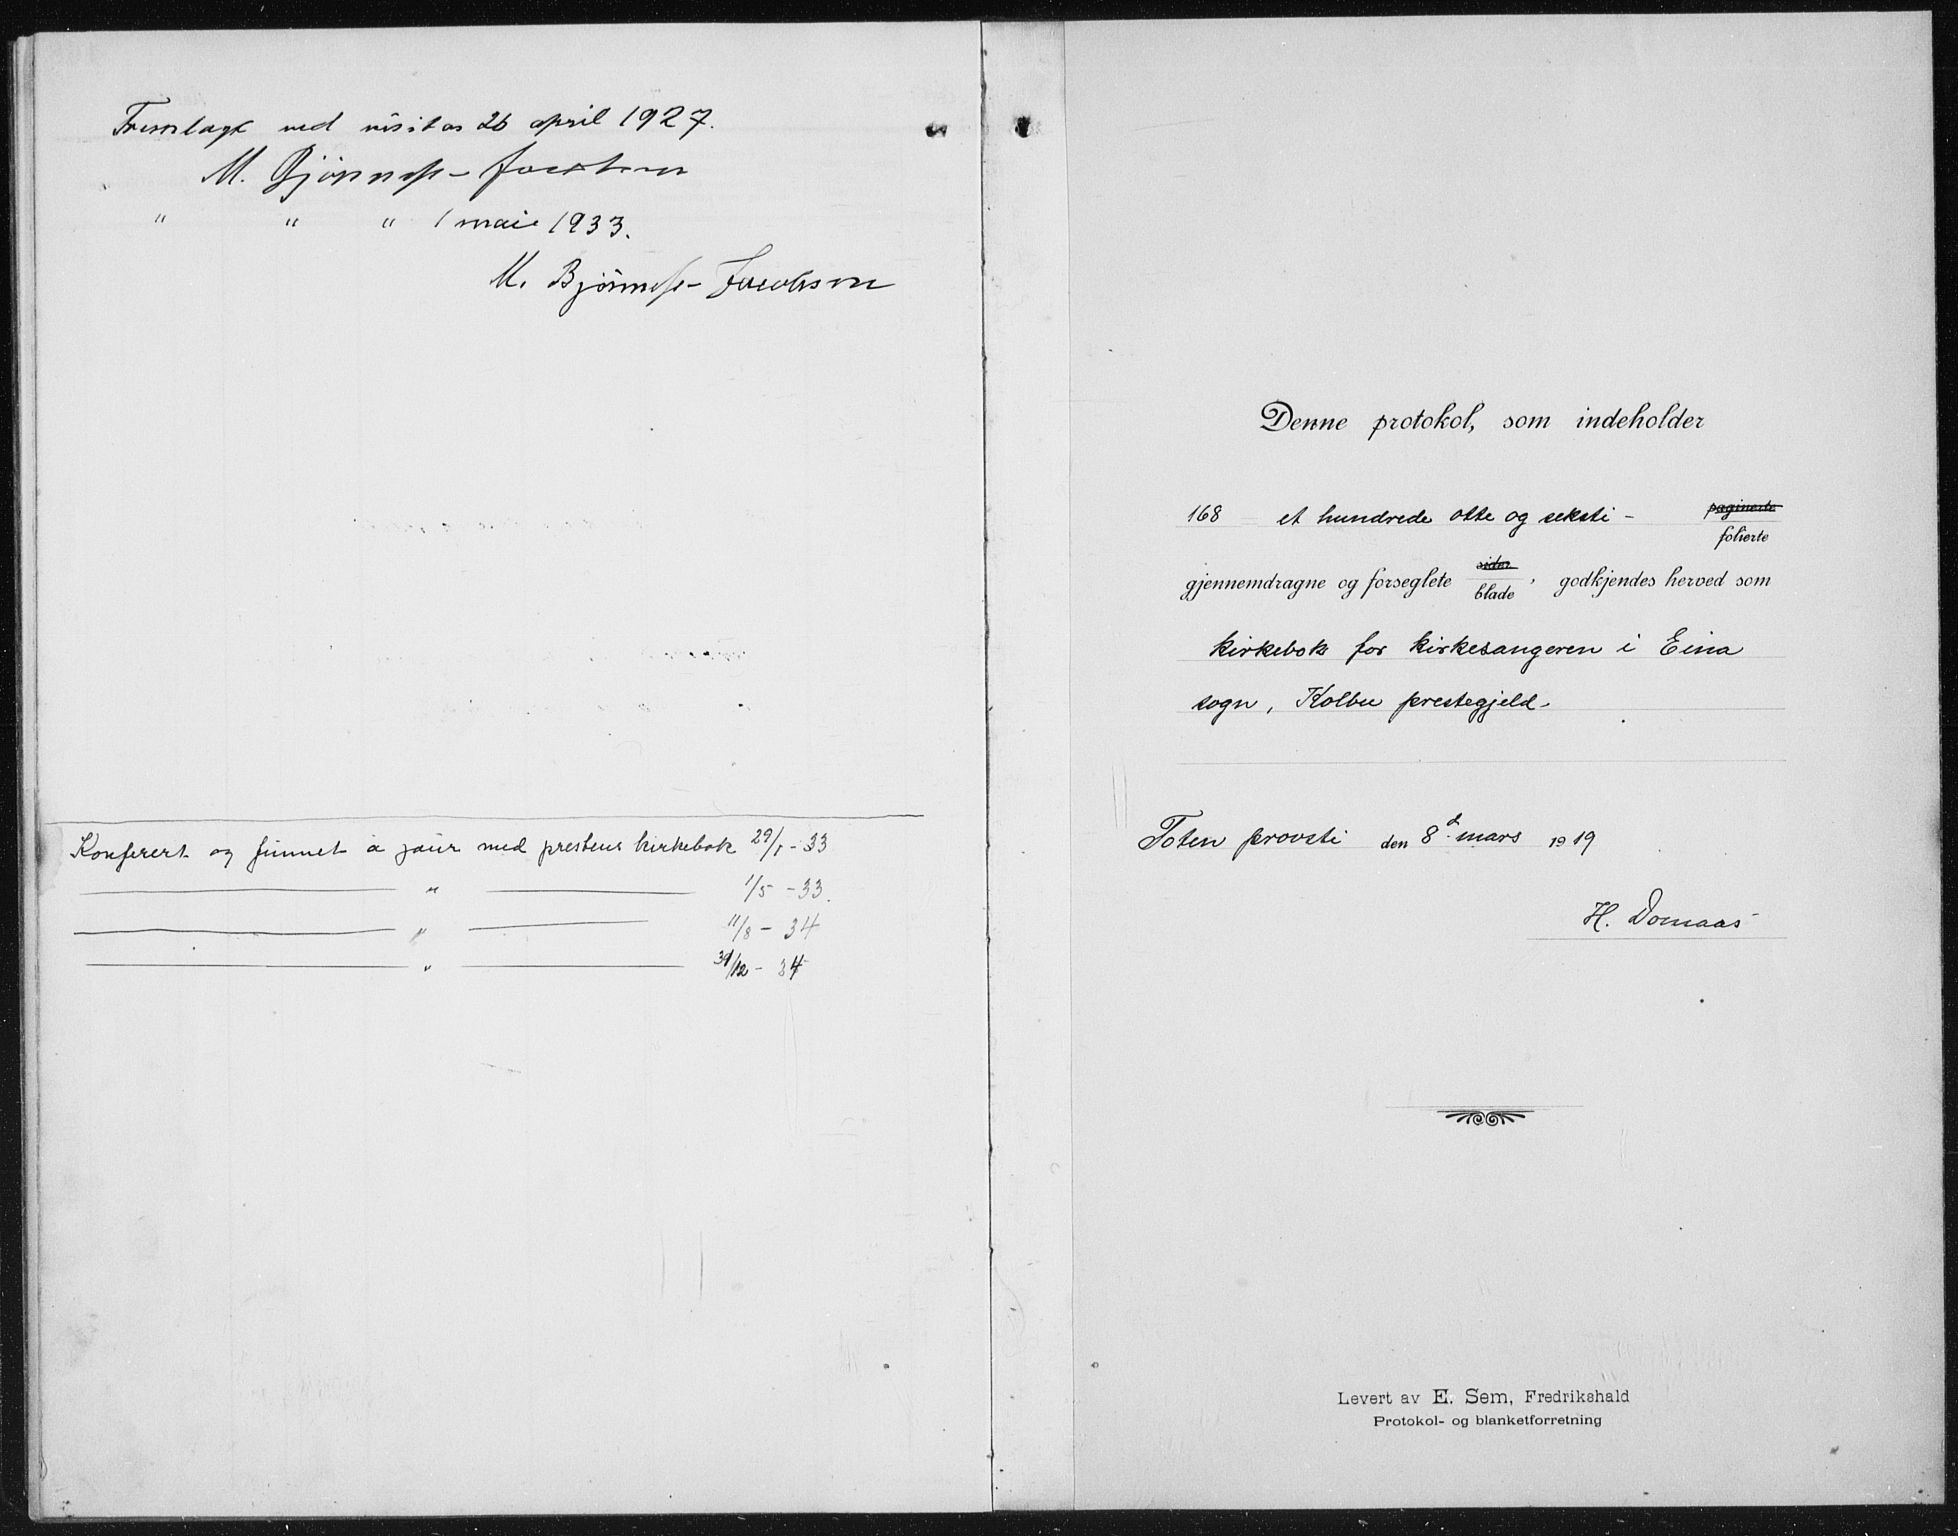 Fremlagt ved visitas 26 april 1927.
M. Bjønness-Jacobsen
" " " 1 mai 1933.
M. Bjønness-Jacobsen
Konferert og funnet à jour med prestens kirkebok 29/1-33
" 1/5-33.
" 11/8-34
" 31/12-34
Denne protokol, som indeholder
168 et hundrede otte og seksti- paginerte
folierte
gjennemdragne og forseglete sider
blade, godkjendes herved som
kirkebok for kirkesangeren i Eina
sogn, Kolbu prestegjeld-
Toten provsti den 8d mars 1919
H. Domaas
Levert av E. Sem, Fredrikshald
Protokol- og blanketforretning